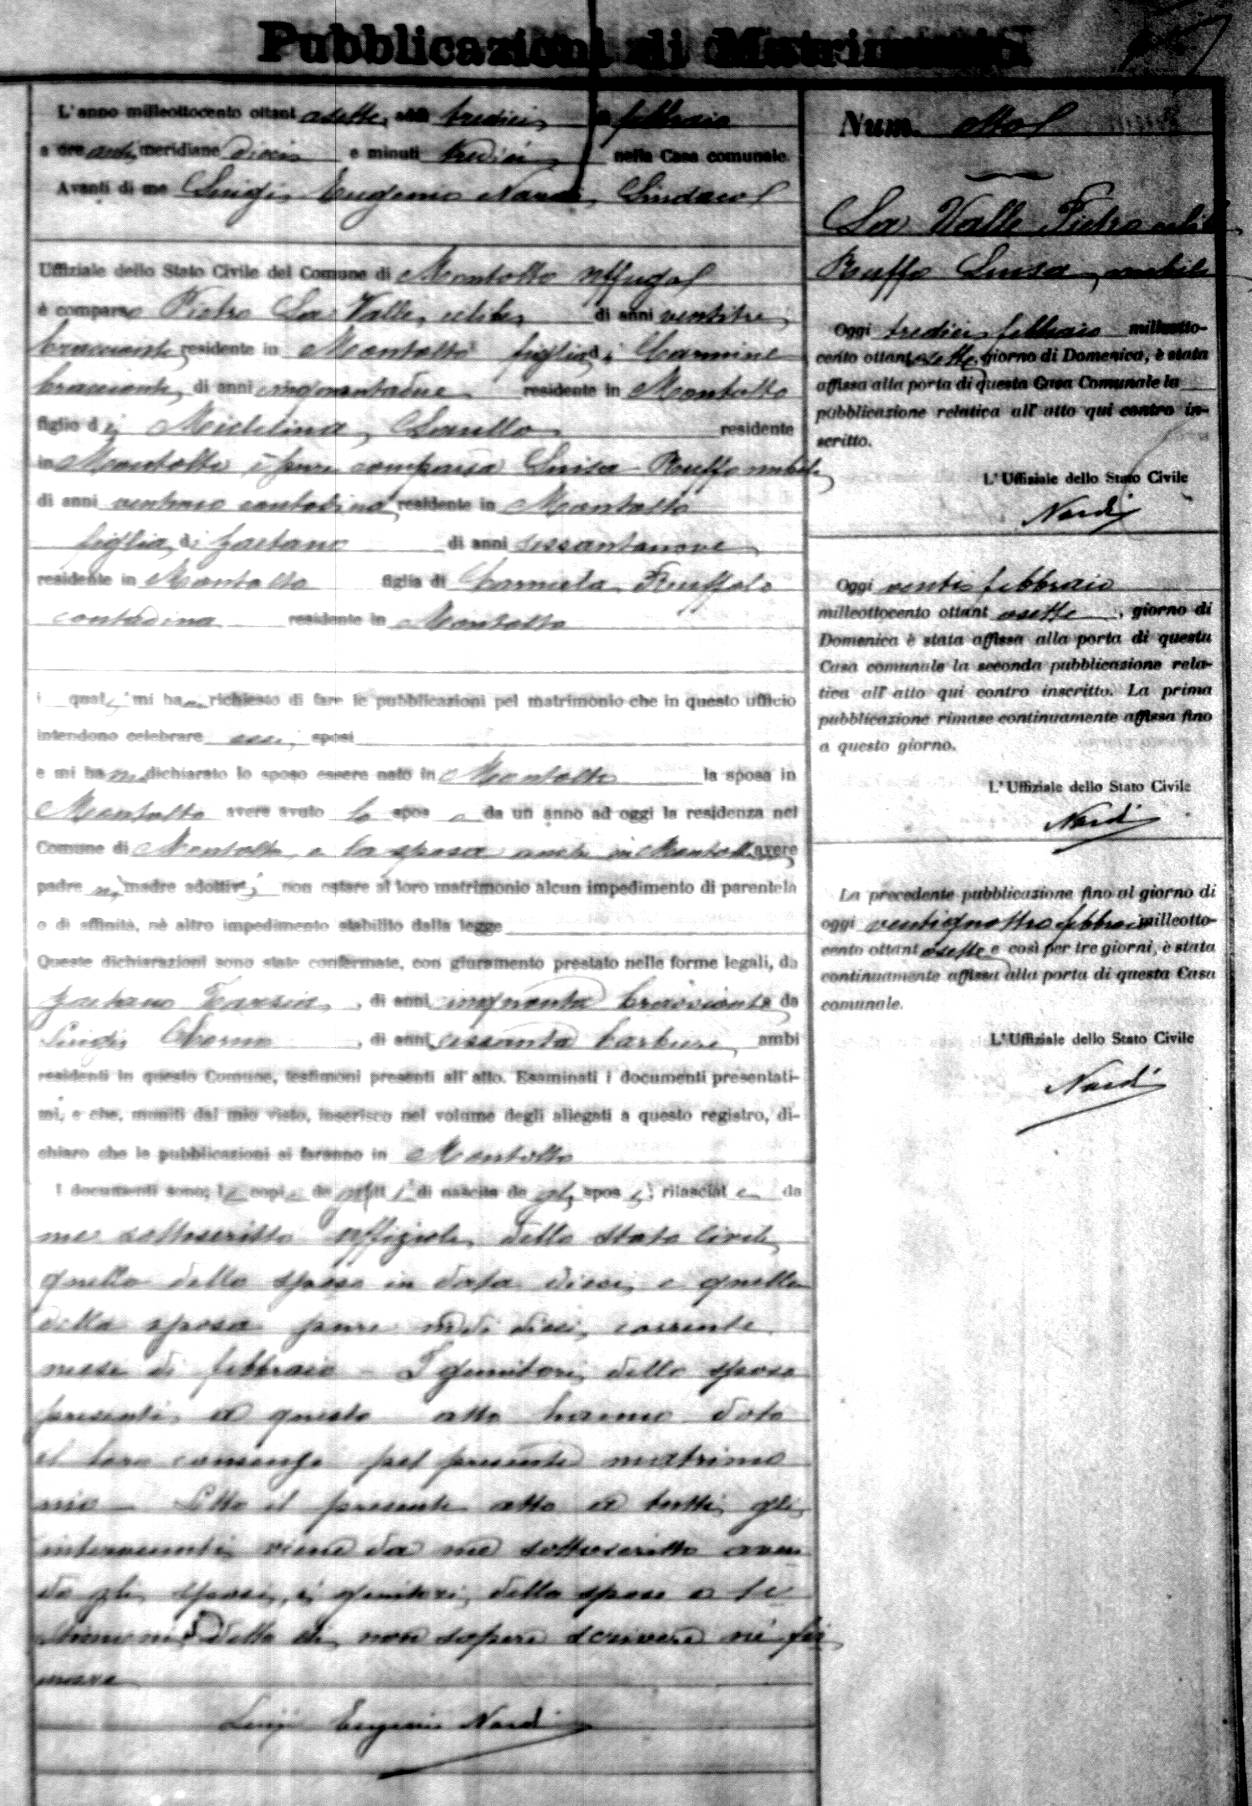 Pubblicazioni di Matrimonio
L'anno milleottocento ottantasette, addì tredici, febbraio
a ore anti meridiane dieci e minuti tredici, nella Casa comunale.
Avanti di me Luigi Eugenio Nardi, Sindaco
Uffiziale dello Stato Civile del Comune di Montalto Uffugo
è comparso Pietro La Valle, celibe, di anni ventitre,
bracciante, residente in Montalto figlio di Carmine
bracciante, di anni cinquantadue residente in Montalto
figlio di Michelina residente
in Montalto è pure comparsa Luisa Ruffo nubile,
di anni contadina, residente in Montalto
figlia di Gaetano di anni sessantanove,
residente in Montalto figlia di Carmela Ruffolo
contadina residente in Montalto
i quali mi han richiesto di fare le pubblicazioni pel matrimonio che in questo ufficio
intendono celebrare essi sposi
e mi hanno dichiarato lo sposo essere nato in Montalto la sposa in
Montalto avere avuto lo sposo da un anno ad oggi la residenza nel
Comune di Montalto, e la sposa anche in Montalto avere
padre madre adottivi, non ostare al loro matrimonio alcun impedimento di parentela
o di affinità, nè altro impedimento stabilito dalla legge
Queste dichiarazioni sono state confermate, con giuramento prestato nelle forme legali, da
Gaetano Tarsia, di anni cinquanta bracciante da
Luigi, di anni sessanta barbiere, ambi
residenti in questo Comune, testimoni presenti all'atto. Esaminati i documenti presentati-
mi, e che, muniti dal mio visto, inserisco nel volume degli allegati a questo registro, di-
chiaro che le pubblicazioni si faranno in Montalto
I documenti sono: le copie de gli atti di nascita de gli sposi, rilasciate da
me sottoscritto uffiziale dello stato Civile,
quello dello sposo in data dieci, e quello
della sposa pure dieci, corrente
mese di febbraio - I genitori dello sposo
presenti a questo atto hanno dato
il loro consenso pel presente matrimo
nio - Letto il presente atto a tutti gli
intervenuti viene da me sottoscritto aven
do gli sposi, i genitori dello sposo e te
stimoni detto di non sapere scrivere nè fir
mare
Luigi Eugenio Nardi
Num. otto
La Valle Pietro celibe
Ruffo Luisa, nubile
Oggi tredici febbraio milleotto-
cento ottantasette, giorno di Domenica, è stata
affissa alla porta di questa Casa Comunale la
pubblicazione relativa all'atto qui contro in-
scritto.
L'Uffiziale dello Stato Civile
Nardi
Oggi venti febbraio
milleottocento ottantasette, giorno di
Domenica è stata affissa alla porta di questa
Casa comunale la seconda pubblicazione rela-
tiva all'atto qui contro inscritto. La prima
pubblicazione rimase continuamente affissa fino
a questo giorno.
L'Uffiziale dello Stato Civile
Nardi
La precedente pubblicazione fino al giorno di
oggi ventiquattro febbraio milleotto-
cento ottantasette e così per tre giorni, è stata
continuamente affissa alla porta di questa Casa
comunale.
L'Uffiziale dello Stato Civile
Nardi